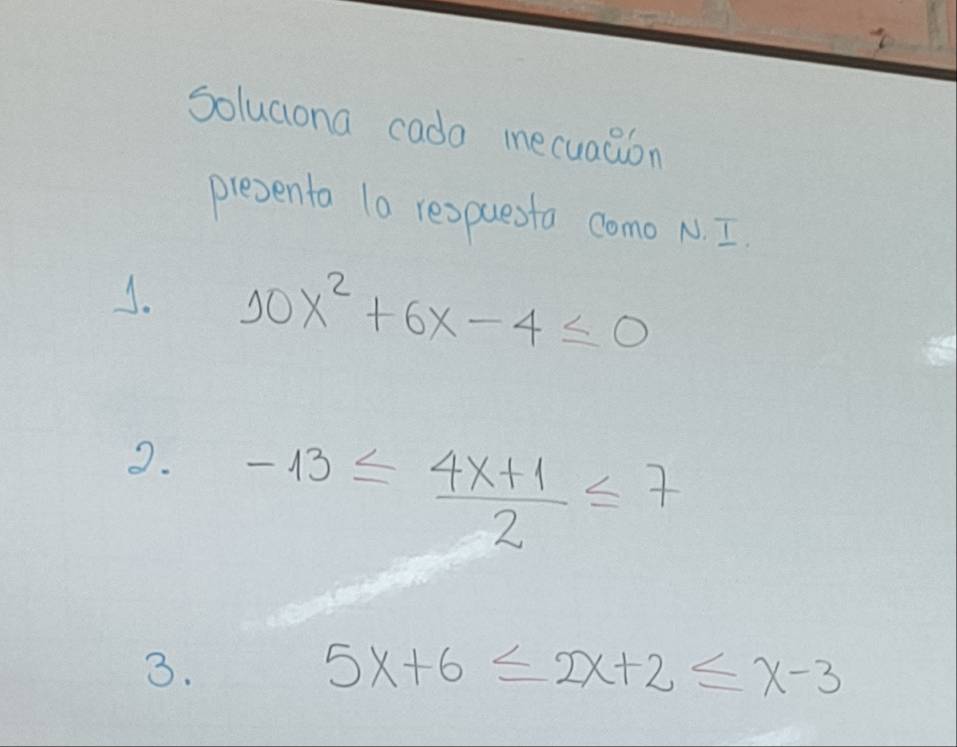 Soluciona cada inecuación
presenta la respuesta como N.I.
1. 10x² + 6x - 4 ≤ 0
2. -13 ≤ (4x+1)/2 ≤ 7
3. 5x+6 ≤ 2x+2 ≤ x-3